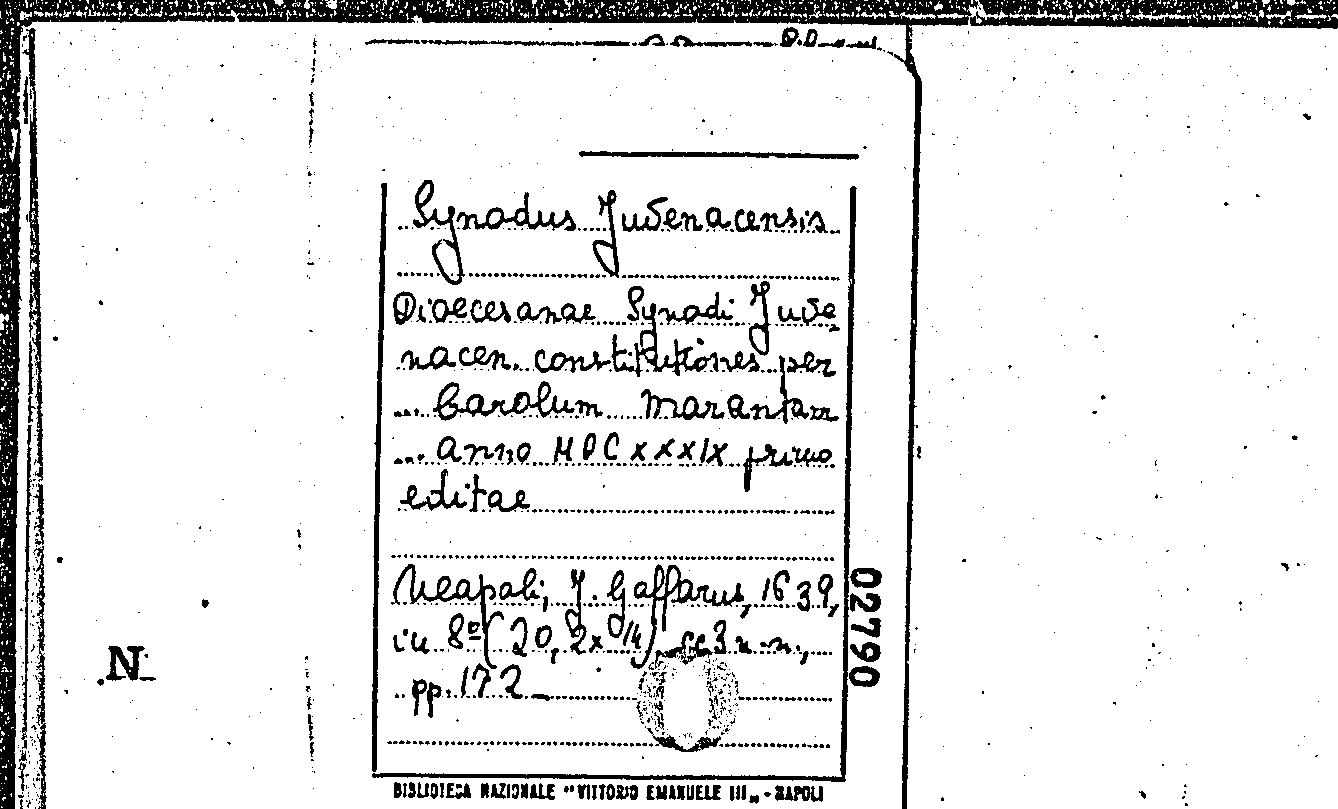 Synodus Juvenacensis
Dioecesanae Synodi Juve
nacen. constitutiones per
... Carolum Marantam
... anno MDCXXXIX primo
editae
Neapoli, J. Gaffarus, 1639,
in 8º (20,2x14), cc 3 n.n.,
pp. 172
02790
N
BIBLIOTECA NAZIONALE "VITTORIO EMANUELE III„ - NAPOLI